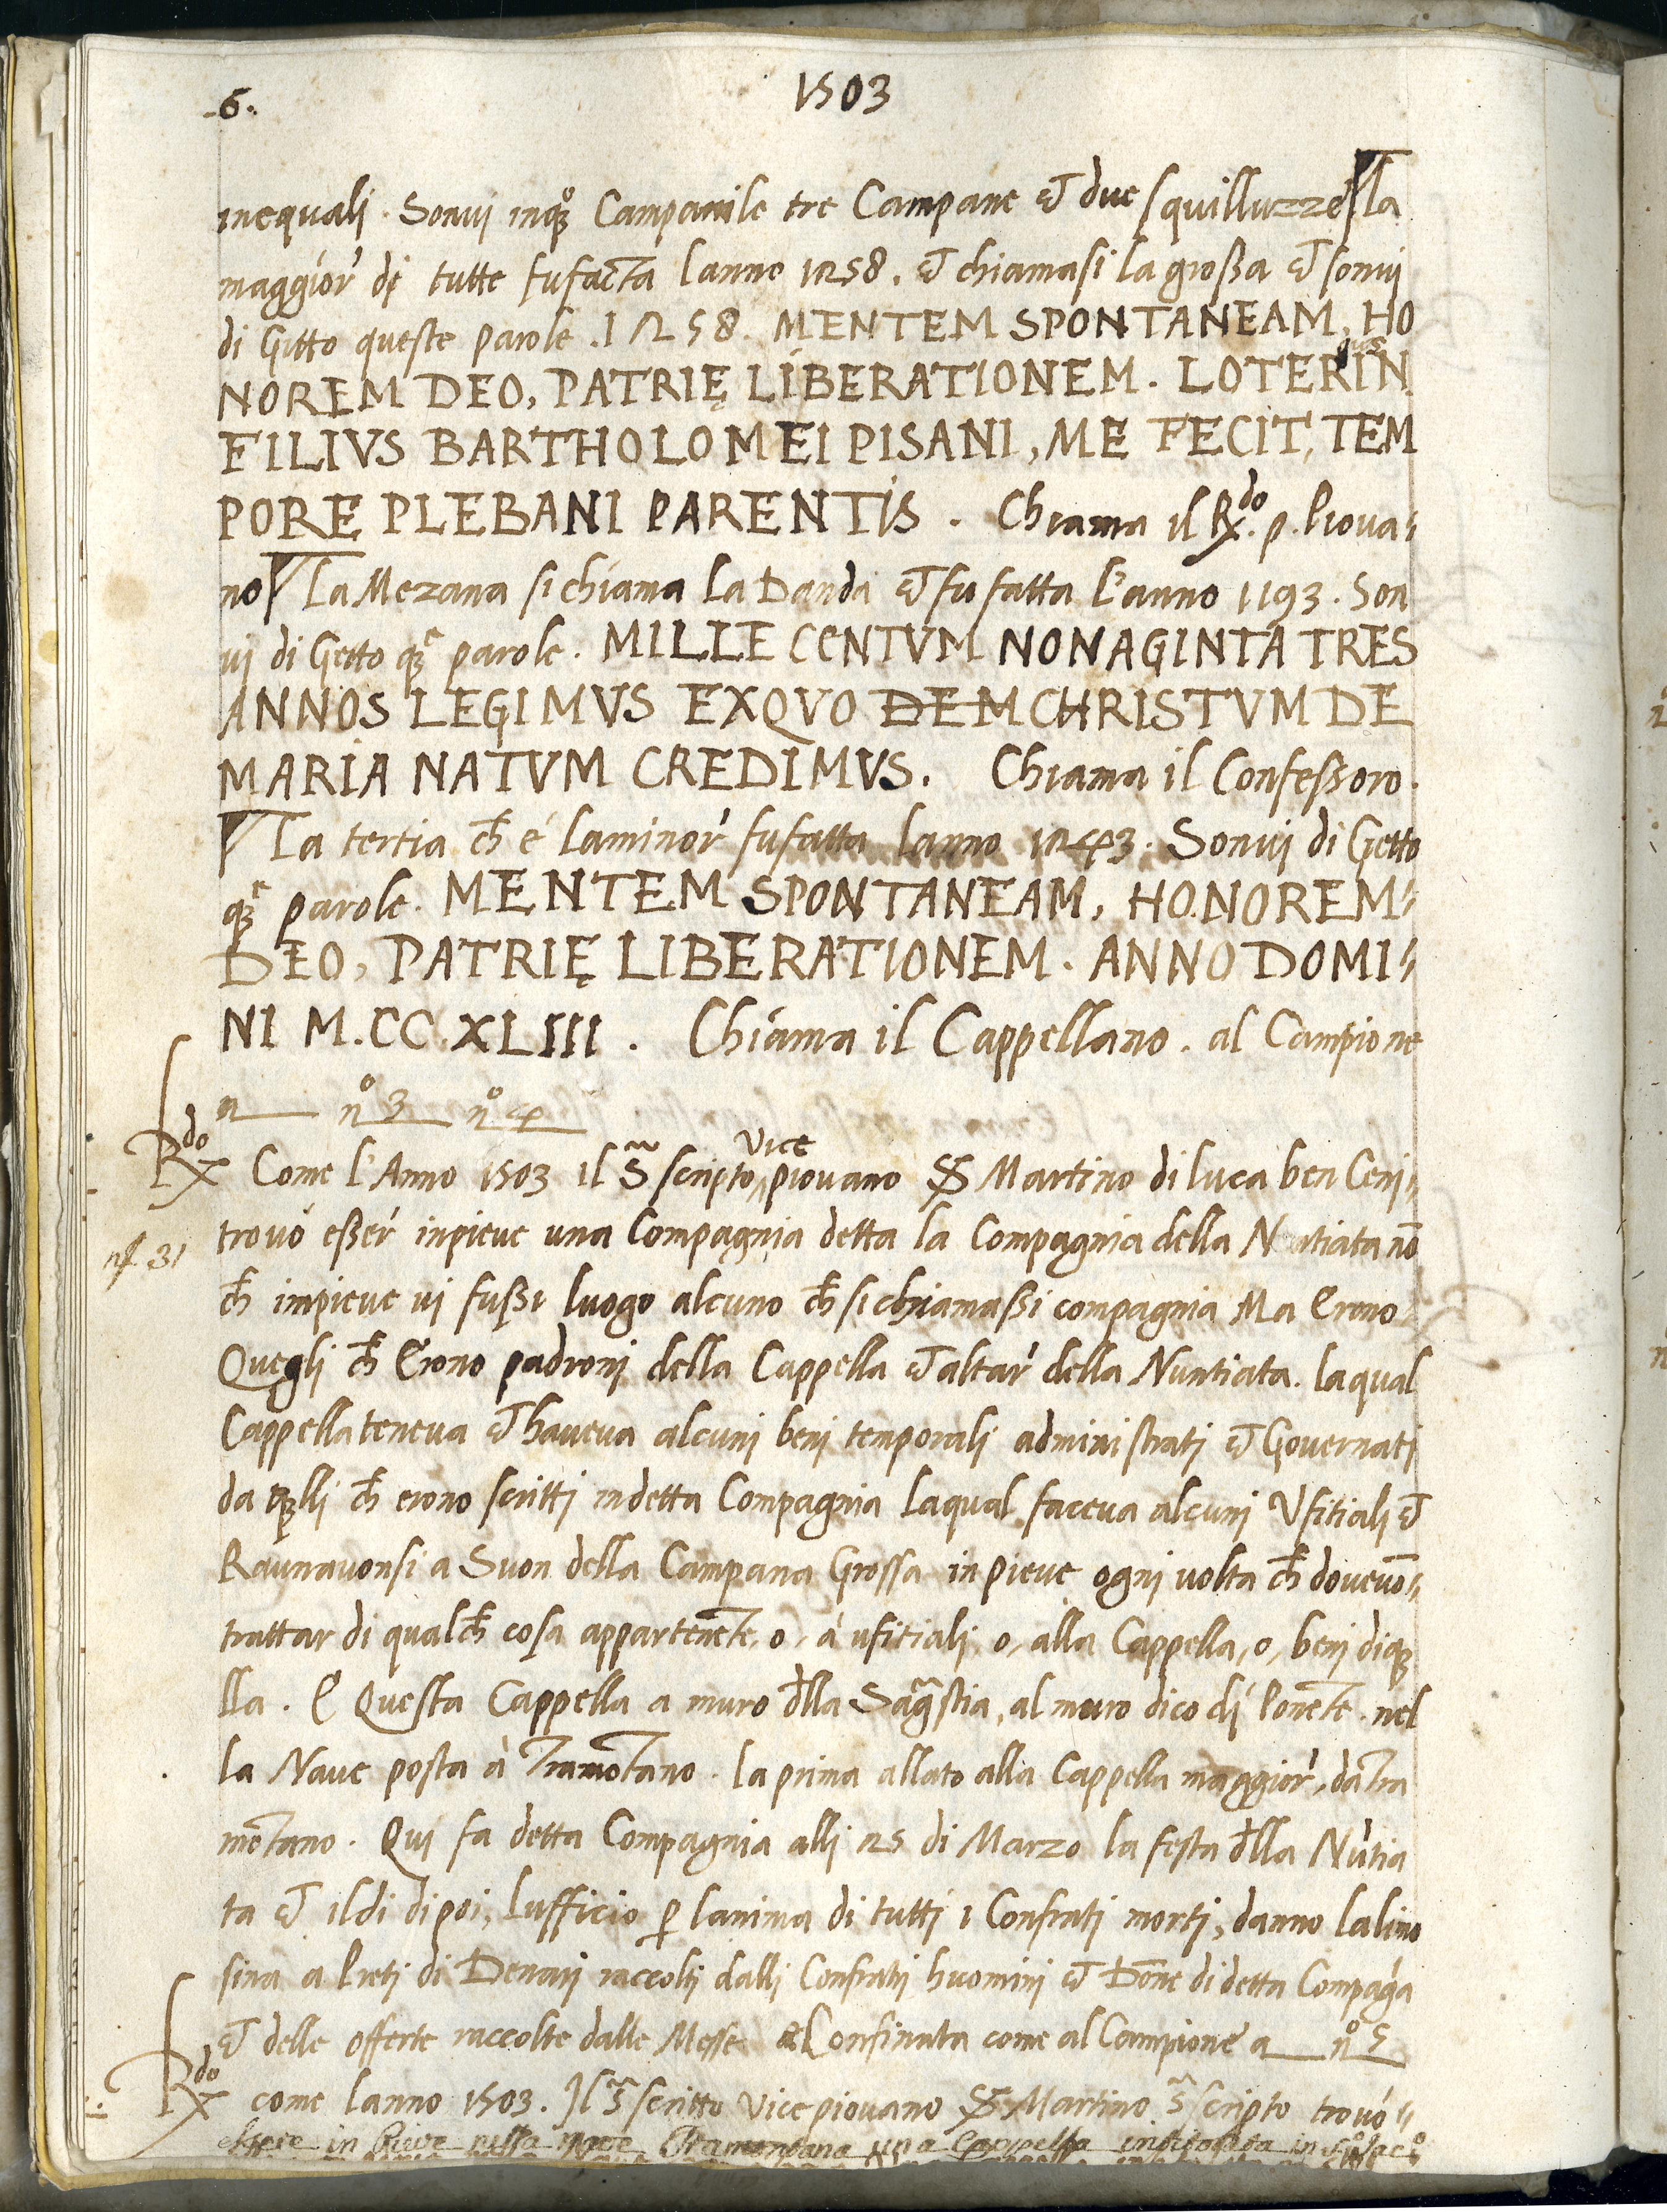 6.
1503
inequali. Sonvi inqsto Campanile tre Campane et due squilluzze. La
maggior' di tutte fu facta lanno 1258. et chiamasi la grossa et sonvi
di Gitto queste parole. 1258. MENTEM SPONTANEAM, HO
NOREM DEO, PATRIĘ LIBERATIONEM. LOTERIN
gus
FILIVS BARTHOLOMEI PISANI, ME FECIT, TEM
PORE PLEBANI PARENTIS. Chiama il Rdo. p. Piova=
no La Mezana si chiama La Danda et fu fatta l'anno 1193. Son
vi di Getto qste parole. MILLE CENTVM NONAGINTA TRES
ANNOS LEGIMVS EXQVO DEM CHRISTVM DE
MARIA NATVM CREDIMVS. Chiama il Confessoro.
La tertia ch é laminor' fu fatta lanno 1243. Sonvi di Getto
qste parole. MENTEM SPONTANEAM, HONOREM=
DEO, PATRIĘ LIBERATIONEM. ANNO DOMI=
NI M.CC.XLIII. Chiama il Cappellano. al Campione
a no 3 no 4
Rdo Come l'Anno 1503 il S scripto vice piovano S Martino di luca ben Ceni=
nf 31
trovó esser' inpieve una Compagnia detta la Compagnia della Nūtiata nō
ch inpieve vi fussi luogo alcuno ch si chiamassi compagnia Ma Erono
Quegli ch Erono padroni della Cappella et altar' della Nuntiata. laqual
Cappella teneva et haveva alcuni beni temporali administrati et Governati
da qlli ch erono scritti in detta Compagnia Laqual faceva alcuni Vfitiali et
Raunavonsi a Suon della Campana Grossa in pieve ogni volta ch dovevō=
trattar di qualch cosa appartenēte, o, á ufitiali, o, alla Cappella, o, beni di q
lla. E Questa Cappella a muro dlla Sagstia, al muro dico di Ponēte. nel
la Nave posta à Tramōtano. la prima allato alla Cappella maggior', da Tra
mōtano. Qui fa detta Compagnia alli 25 di Marzo la festa dlla Nūtia
ta et il di dipoi, Lufficio p lanima di tutti i Confrati morti, danno lalimo
sina a Preti di Denari raccolti dalli Confrati huomini et Dōne di detta Compaga
et delle offerte raccolte dalle Messe. et Confinata come al Campione a no 5
Rdo come lanno 1503. Il S scritto Vice piovano S Martino S scripto trovó=
essere in Pieve nella nave Tramontana una Cappella intitolata in